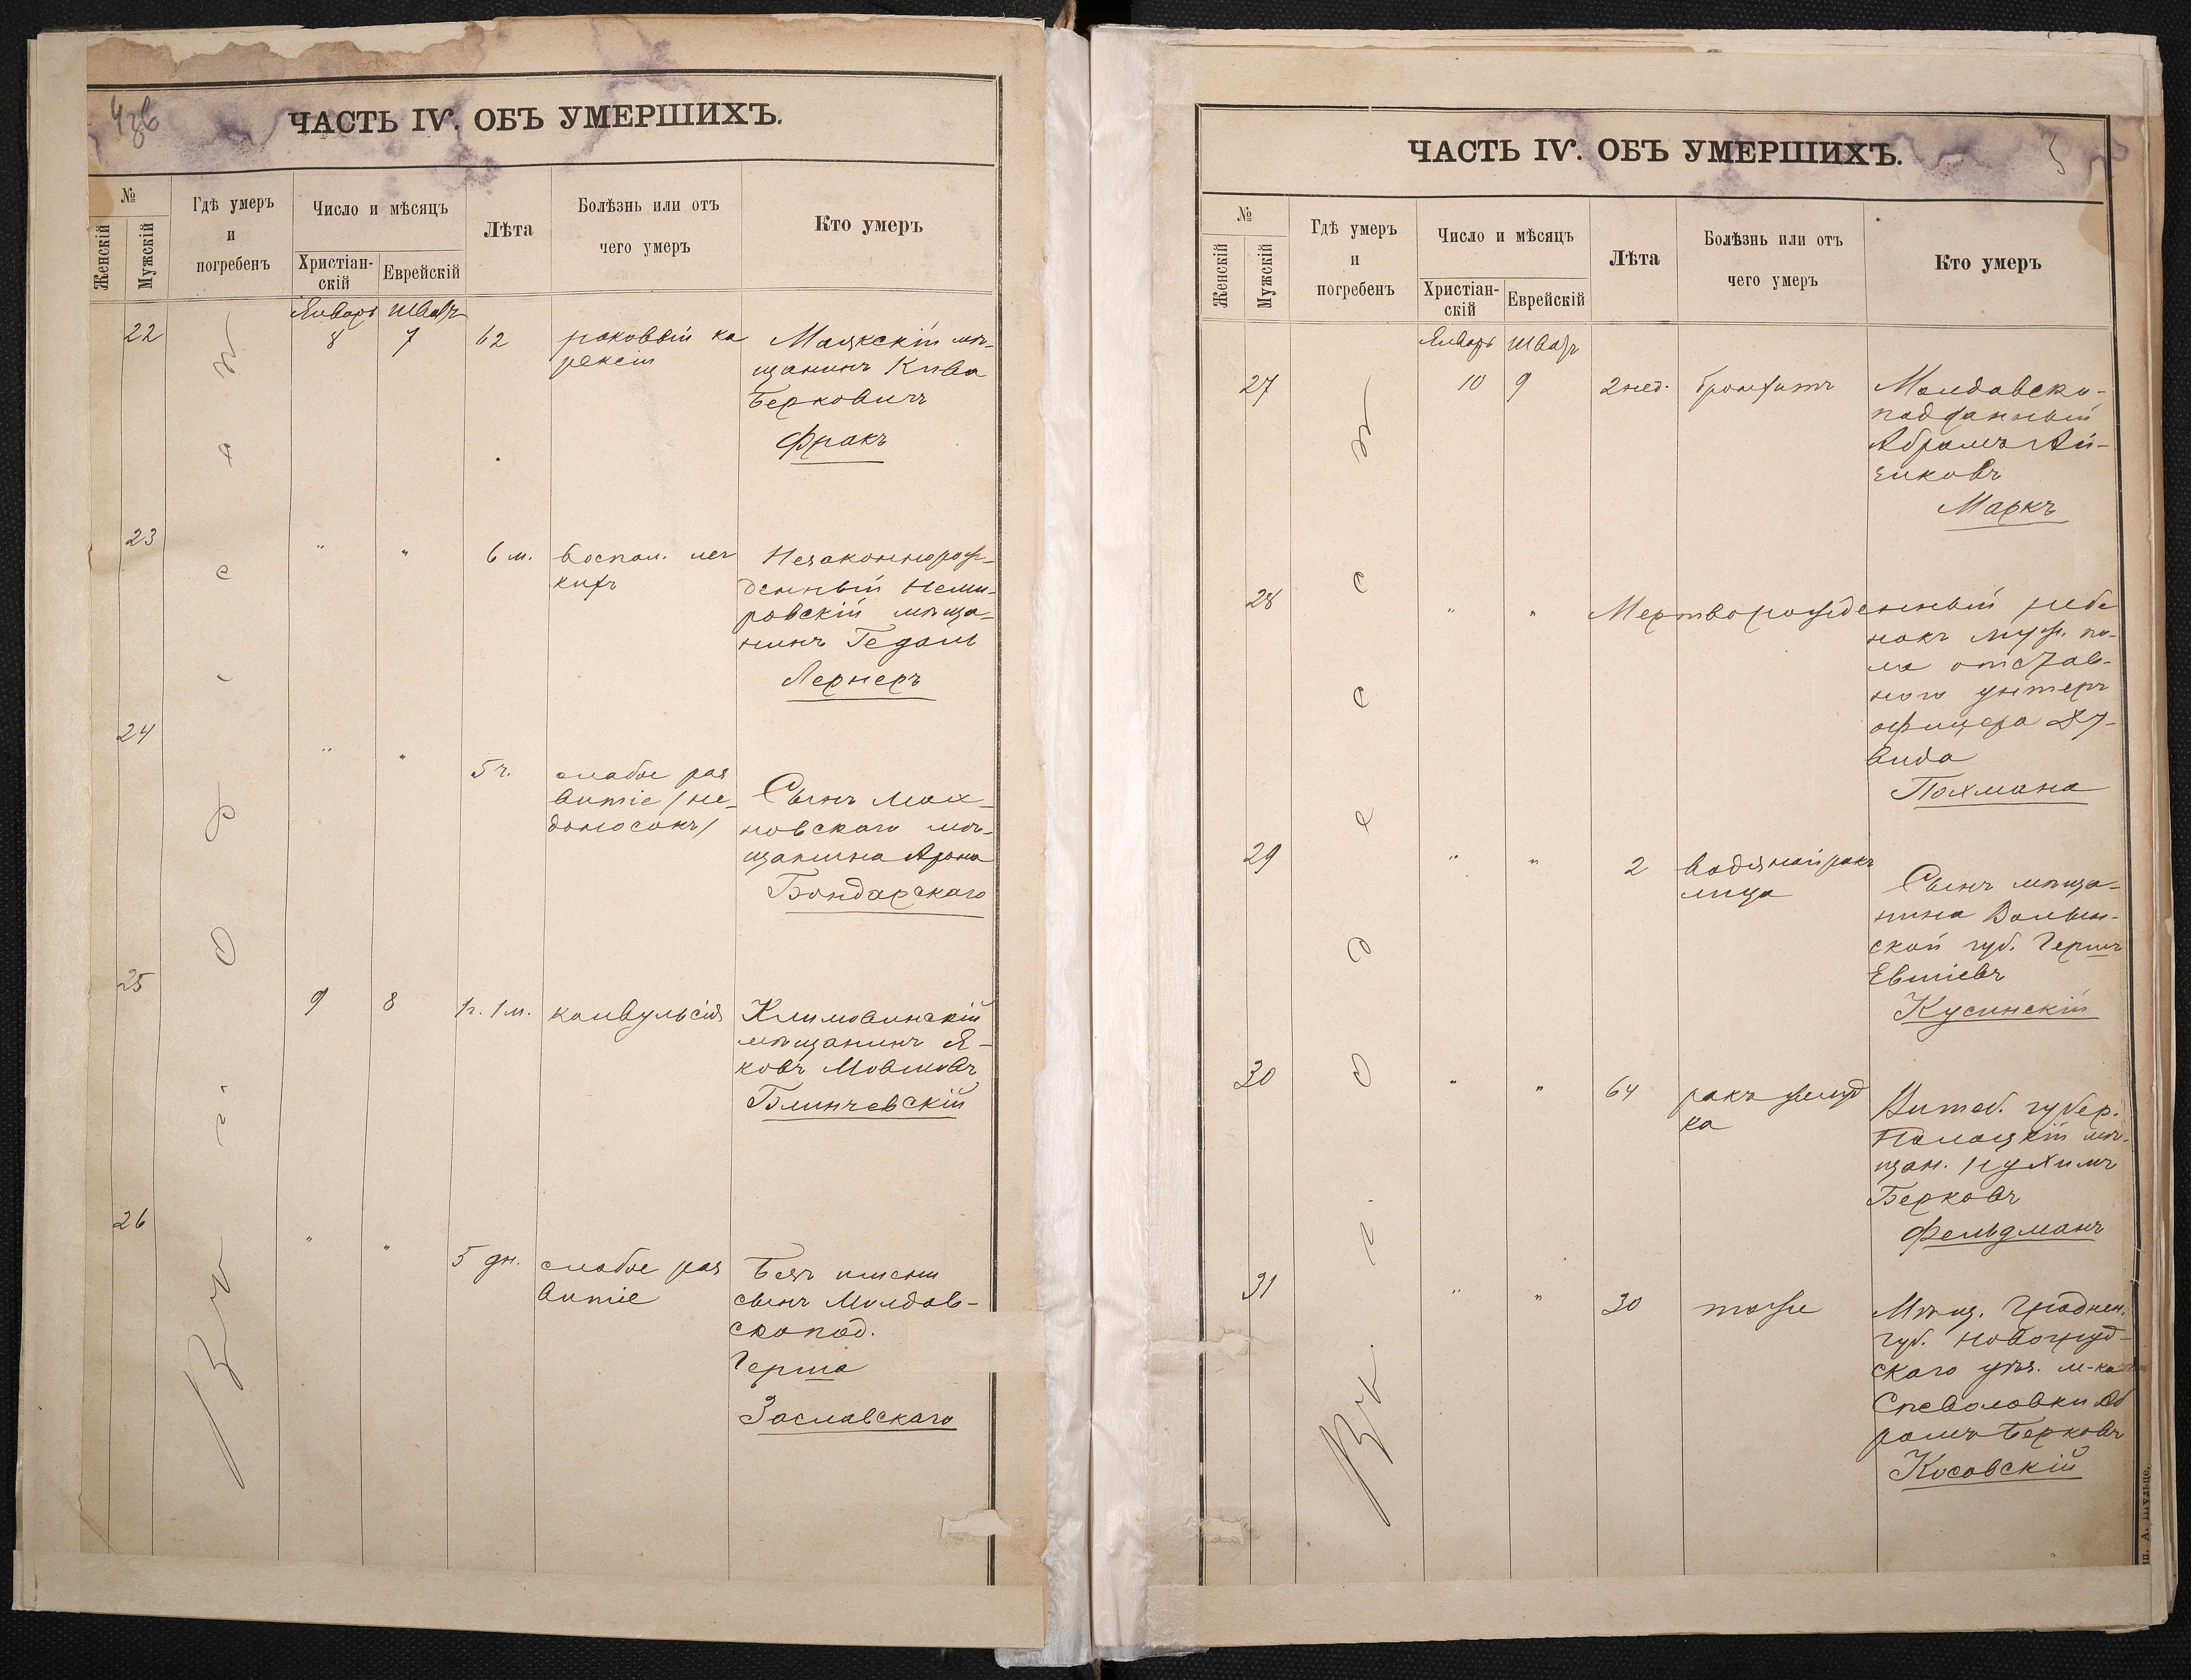 ЧАСТЬ IV. ОБЪ УМЕРШИХЪ.
№
Женскій
Мужскій
Гдѣ умеръ
и
погребенъ
Число и мѣсяцъ
Христіан-
скій
Еврейскій
Лѣта
Болѣзнь или отъ
чего умеръ
Кто умеръ
Январь Шватъ
22 8 7 62 раковый ка
хексія
Маякскій мѣ-
щанинъ Кива
Берковичъ
Фракъ
23 " " 6 м. воспал. лег
кихъ
Незаконнорож-
денный Неми-
ровскій мѣща-
нинъ Гедаль
Лернеръ
24 " " 5 ч. слабое раз
витіе /не-
доносокъ/
Сынъ Мах-
новскаго мѣ-
щанина Арона
Бондарскаго
25 9 8 1 г. 1 м. конвульсія
Климовинскій
мѣщанинъ Я-
ковъ Мовшовъ
Блинчевскій
26 " " 5 дн. слабое раз
витіе
Безъ имени
сынъ Молдав-
скопод.
Герша
Заславскаго
Въ г. Одессѣ
ЧАСТЬ IV. ОБЪ УМЕРШИХЪ.
3
№
Женскій
Мужскій
Гдѣ умеръ
и
погребенъ
Число и мѣсяцъ
Христіан-
скій
Еврейскій
Лѣта
Болѣзнь или отъ
чего умеръ
Кто умеръ
Январь Шватъ
27 10 9 2 нед. бронхитъ
Молдавско-
подданный
Абрамъ Ай-
зиковъ
Маркъ
28 " " Мертворожденный ребе
нокъ муж. по-
ла отстав-
ного унтеръ
офицера Да-
вида
Похмана
29 " " 2 водяной ракъ
лица
Сынъ мѣща-
нина Волын-
ской губ. Гершъ
Евшіевъ
Кусинскій
30 " " 64 ракъ желуд
ка
Витеб. губер.
Полоцкій мѣ-
щан. Нухимъ
Берковъ
Фельдманъ
31 " " 30 тоже
Мѣщ. Гроднен.
губ. Новогруд-
скаго уѣз. м-ка
Аб
рамъ Берковъ
Косовскій
Въ г. Одессѣ